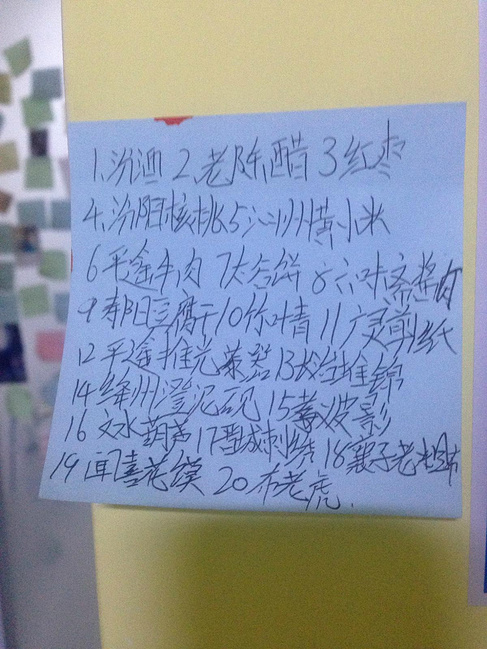 1.汾酒 2.老陈醋 3红枣
4.汾阳核桃5沁州黄小米
6平遥牛肉 7太谷饼 8六味斋酱肉
9寿阳豆腐干10竹叶青11广灵剪纸
12平遥推光漆器13长治堆锦
14绛州澄泥砚 15孝义皮影
16文水葫芦17黎城刺绣18襄子老粗布
19闻喜花馍 20布老虎.